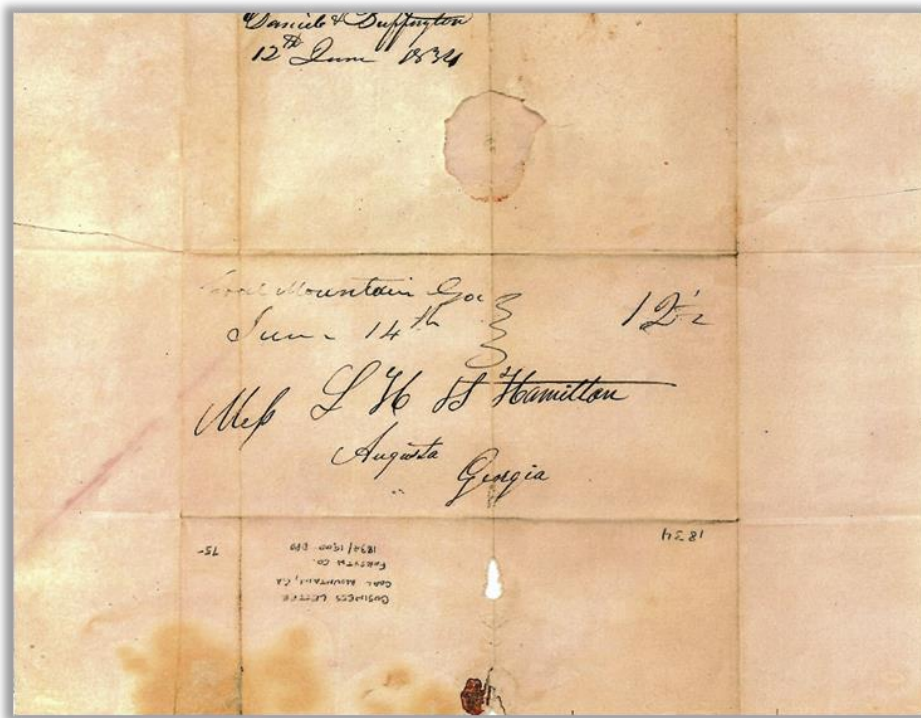 Daniel & Buffington
12th June 1834
Coal Mountain Ga
June 14th
12½
Mess L H Hamilton
Augusta
Georgia
1834
BUSINESS LETTER
COAL MOUNTAIN, GA
FORSYTH CO.
1834/1900 DPO
75-